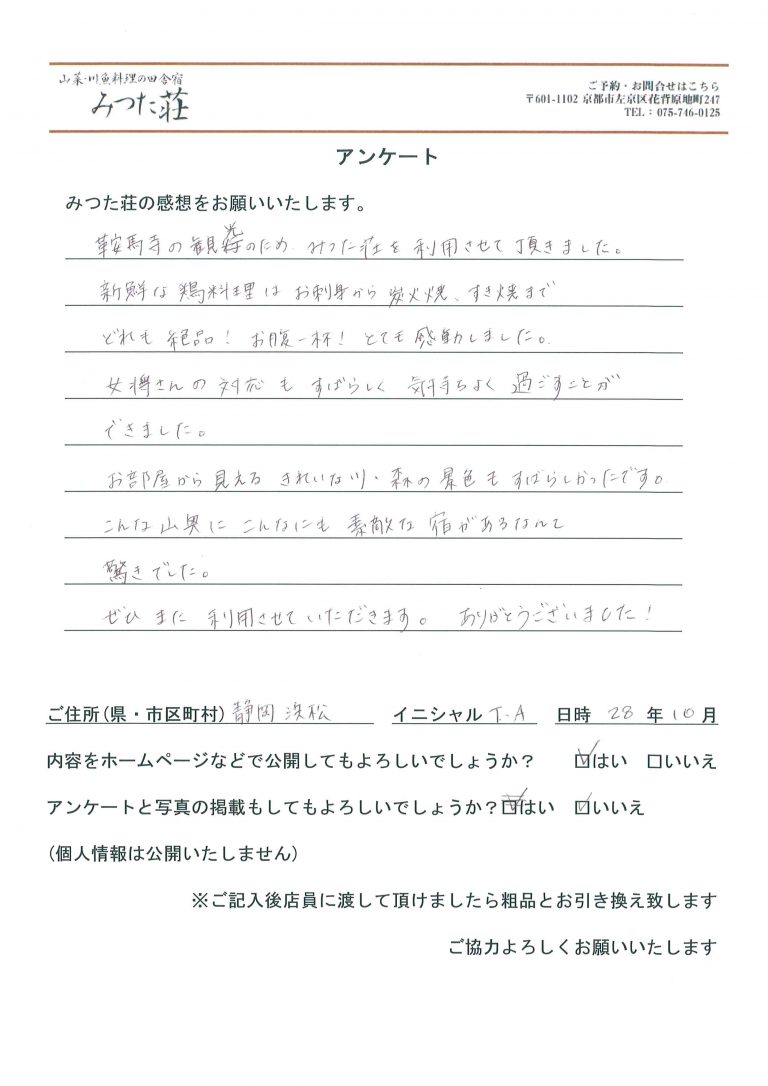 山菜・川魚料理の田舎宿
みつた荘
ご予約・お問合せはこちら
〒601-1102 京都市左京区花背原地町247
TEL：075-746-0125
アンケート
みつた荘の感想をお願いいたします。
鞍馬寺の観光のため みつた荘を利用させて頂きました。
新鮮な鶏料理は お刺身から 炭火焼、すき焼まで
どれも 絶品！ お腹一杯！ とても感動しました。
女将さんの 対応も すばらしく 気持ちよく 過ごすことが
できました。
お部屋から見える きれいな川・森の景色も すばらしかったです。
こんな山奥に こんなにも 素敵な 宿があるなんて
驚きでした。
ぜひ また 利用させていただきます。 ありがとうございました！
ご住所(県・市区町村) 静岡 浜松 イニシャル T.A 日時 28 年 10 月
内容をホームページなどで公開してもよろしいでしょうか？ ☑はい □いいえ
アンケートと写真の掲載もしてもよろしいでしょうか？☑はい ☑いいえ
(個人情報は公開いたしません)
※ご記入後店員に渡して頂けましたら粗品とお引き換え致します
ご協力よろしくお願いいたします